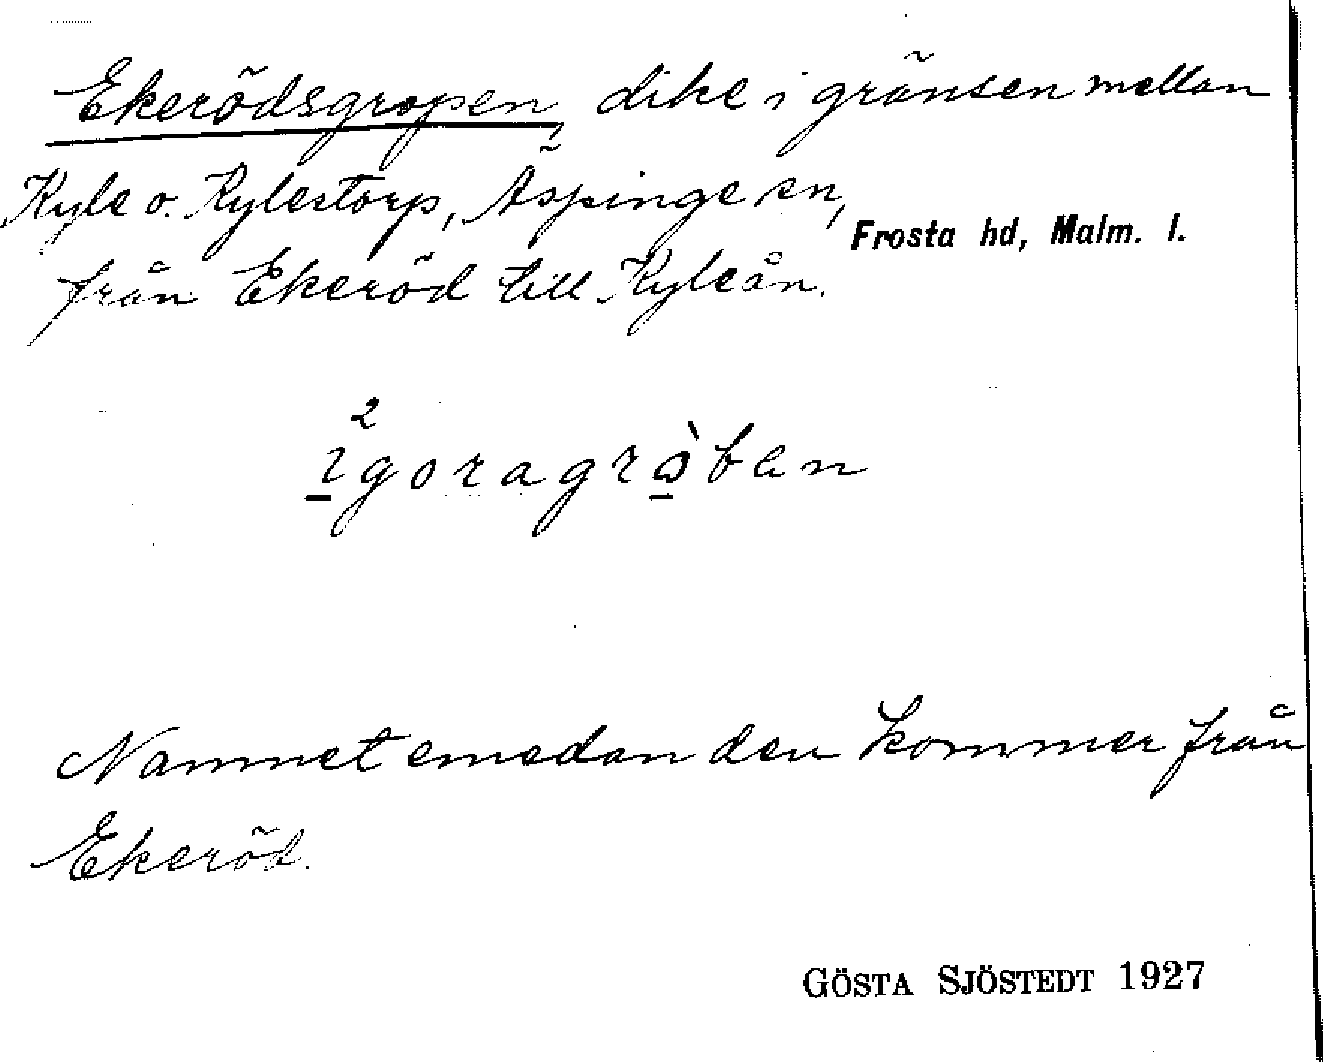 Ekerödsgropen, dike i gränsen mellan
Kyle o. Kylestorp, Äspinge sn,
Frosta hd, Malm. l.
från Ekeröd till Kyleån.
2
ìgoragròben
Namnet emedan den kommer från
Ekeröd.
GÖSTA SJÖSTEDT 1927